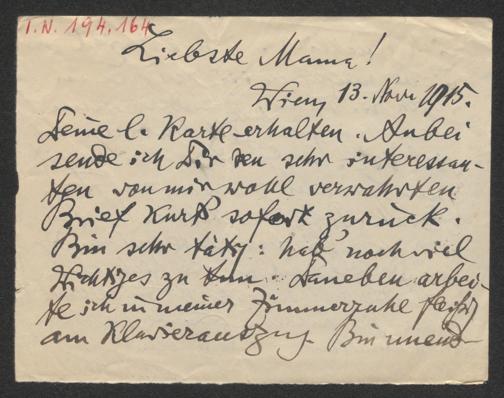 I.N. 194.164
Liebste Mama!
Wien, 13. Nov. 1915.
Deine l. Karte erhalten. Anbei
sende ich Dir den sehr interessan-
ten von mir wohl verwahrten
Brief Kurts sofort zurück.
Bin sehr tätig: hab' noch viel
Wichtiges zu tun. Daneben arbei-
te ich in meiner Zimmerzahl fleißig
am Klavierauszug. Bin unend-